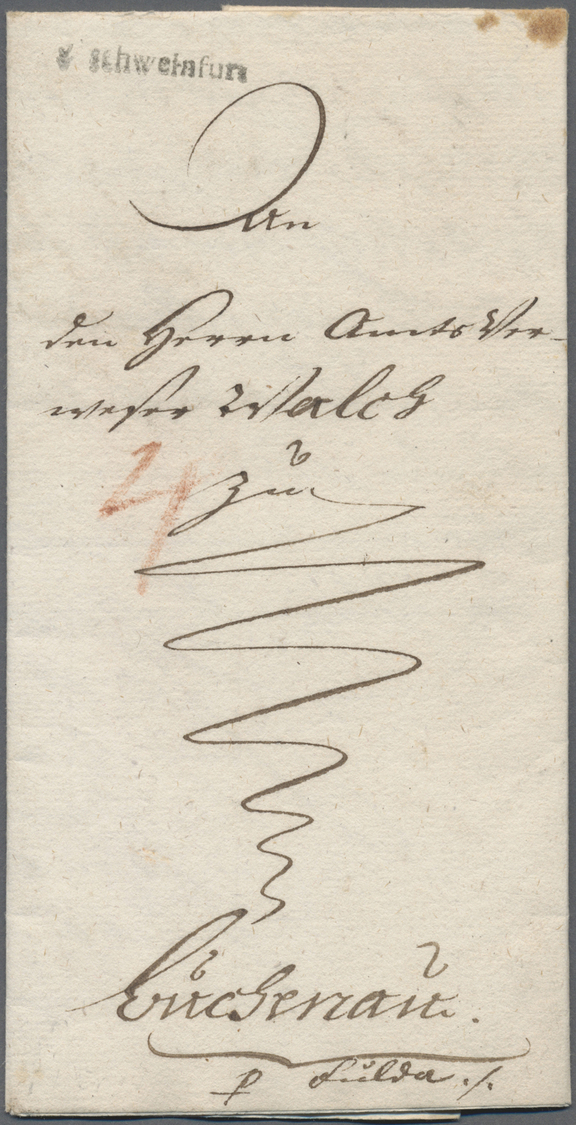 v schweinfurt
An
den Herrn Amts Ver-
weser Walch
4
zu
Buchenau.
p Fulda ./.